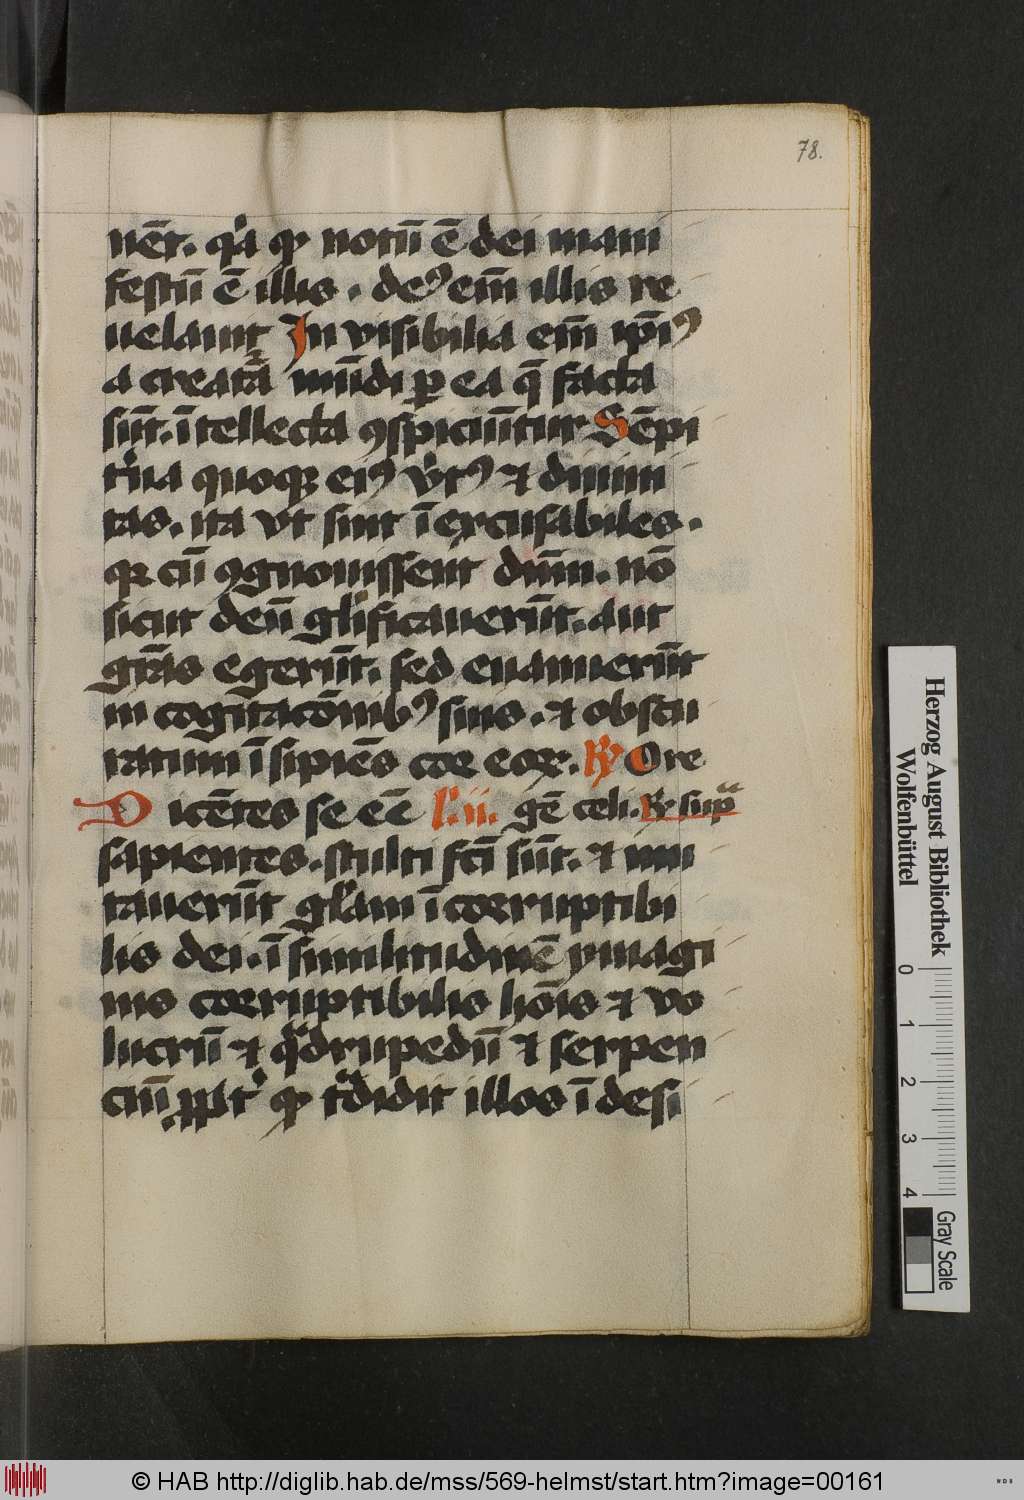 78.
nēt. qͥa qꝫ notū ē dei mani
festū ē illis. deꝰ em̄ illis re
uelauit In visibilia em̄ ip̄iꝰ
a creatᷓa mūdi ꝑ ea q̄ facta
sūt. ītellecta ꝯspiciūtur Sēpi
tͥna quoqꝫ eiꝰ vͥtꝰ ⁊ diuini
tas. ita vt sint īexcusabiles.
qꝛ cū ꝯgnouissent dūm. nō
sicut deū gl̓ificauerūt. aut
gr̄as egerūt. sed euanuerūt
in cogitacōnibꝰ suis. ⁊ obscu
ratum īsipiēs cor eoꝝ. ℟ Ore
Dicētes se eē l'. ii. gē celi. ℟ supͣ
sapientes. stulti fc̄i sūt. ⁊ mu
tauerūt gl̓am īcorruptibi
lis dei. ī similitudinē ymagi
nis corruptibilis hōis ⁊ vo
lucrū ⁊ qᷓdrupedū ⁊ serpen
ciū ꝓpt̓ qꝫ tᷓdidit illos ī desi
Herzog August Bibliothek
Wolfenbüttel
0 1 2 3 4
Gray Scale
© HAB http://diglib.hab.de/mss/569-helmst/start.htm?image=00161